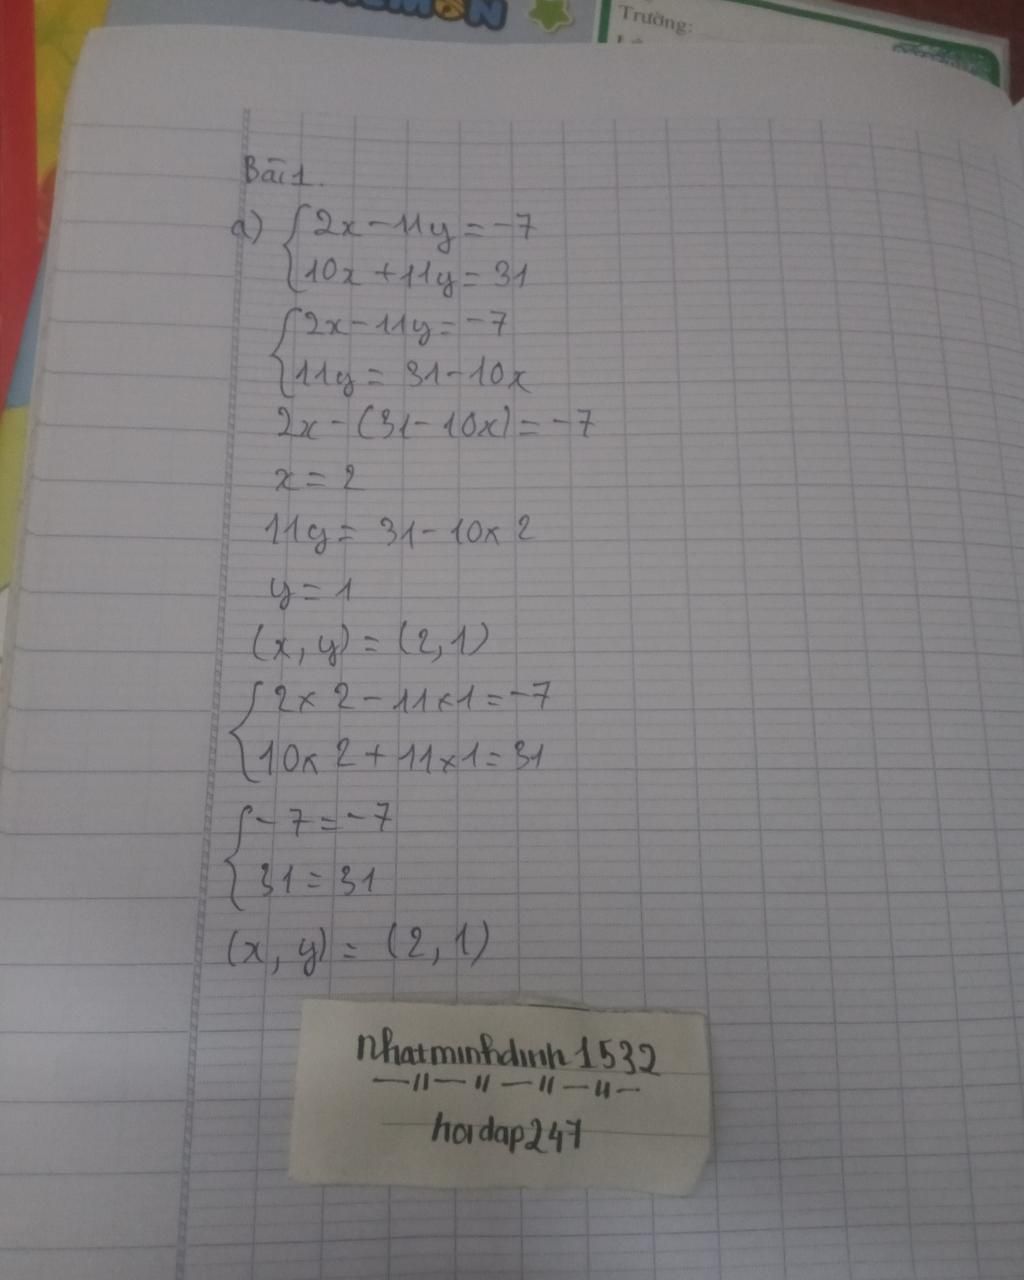 Trường:
Bài 1.
a) { 2x - 11y = -7
10x + 11y = 31
{ 2x - 11y = -7
11y = 31 - 10x
2x - (31 - 10x) = -7
x = 2
11y = 31 - 10 x 2
y = 1
(x, y) = (2, 1)
{ 2 x 2 - 11 x 1 = -7
10 x 2 + 11 x 1 = 31
{ -7 = -7
31 = 31
(x, y) = (2, 1)
nhatminhdinh1532
hoidap247